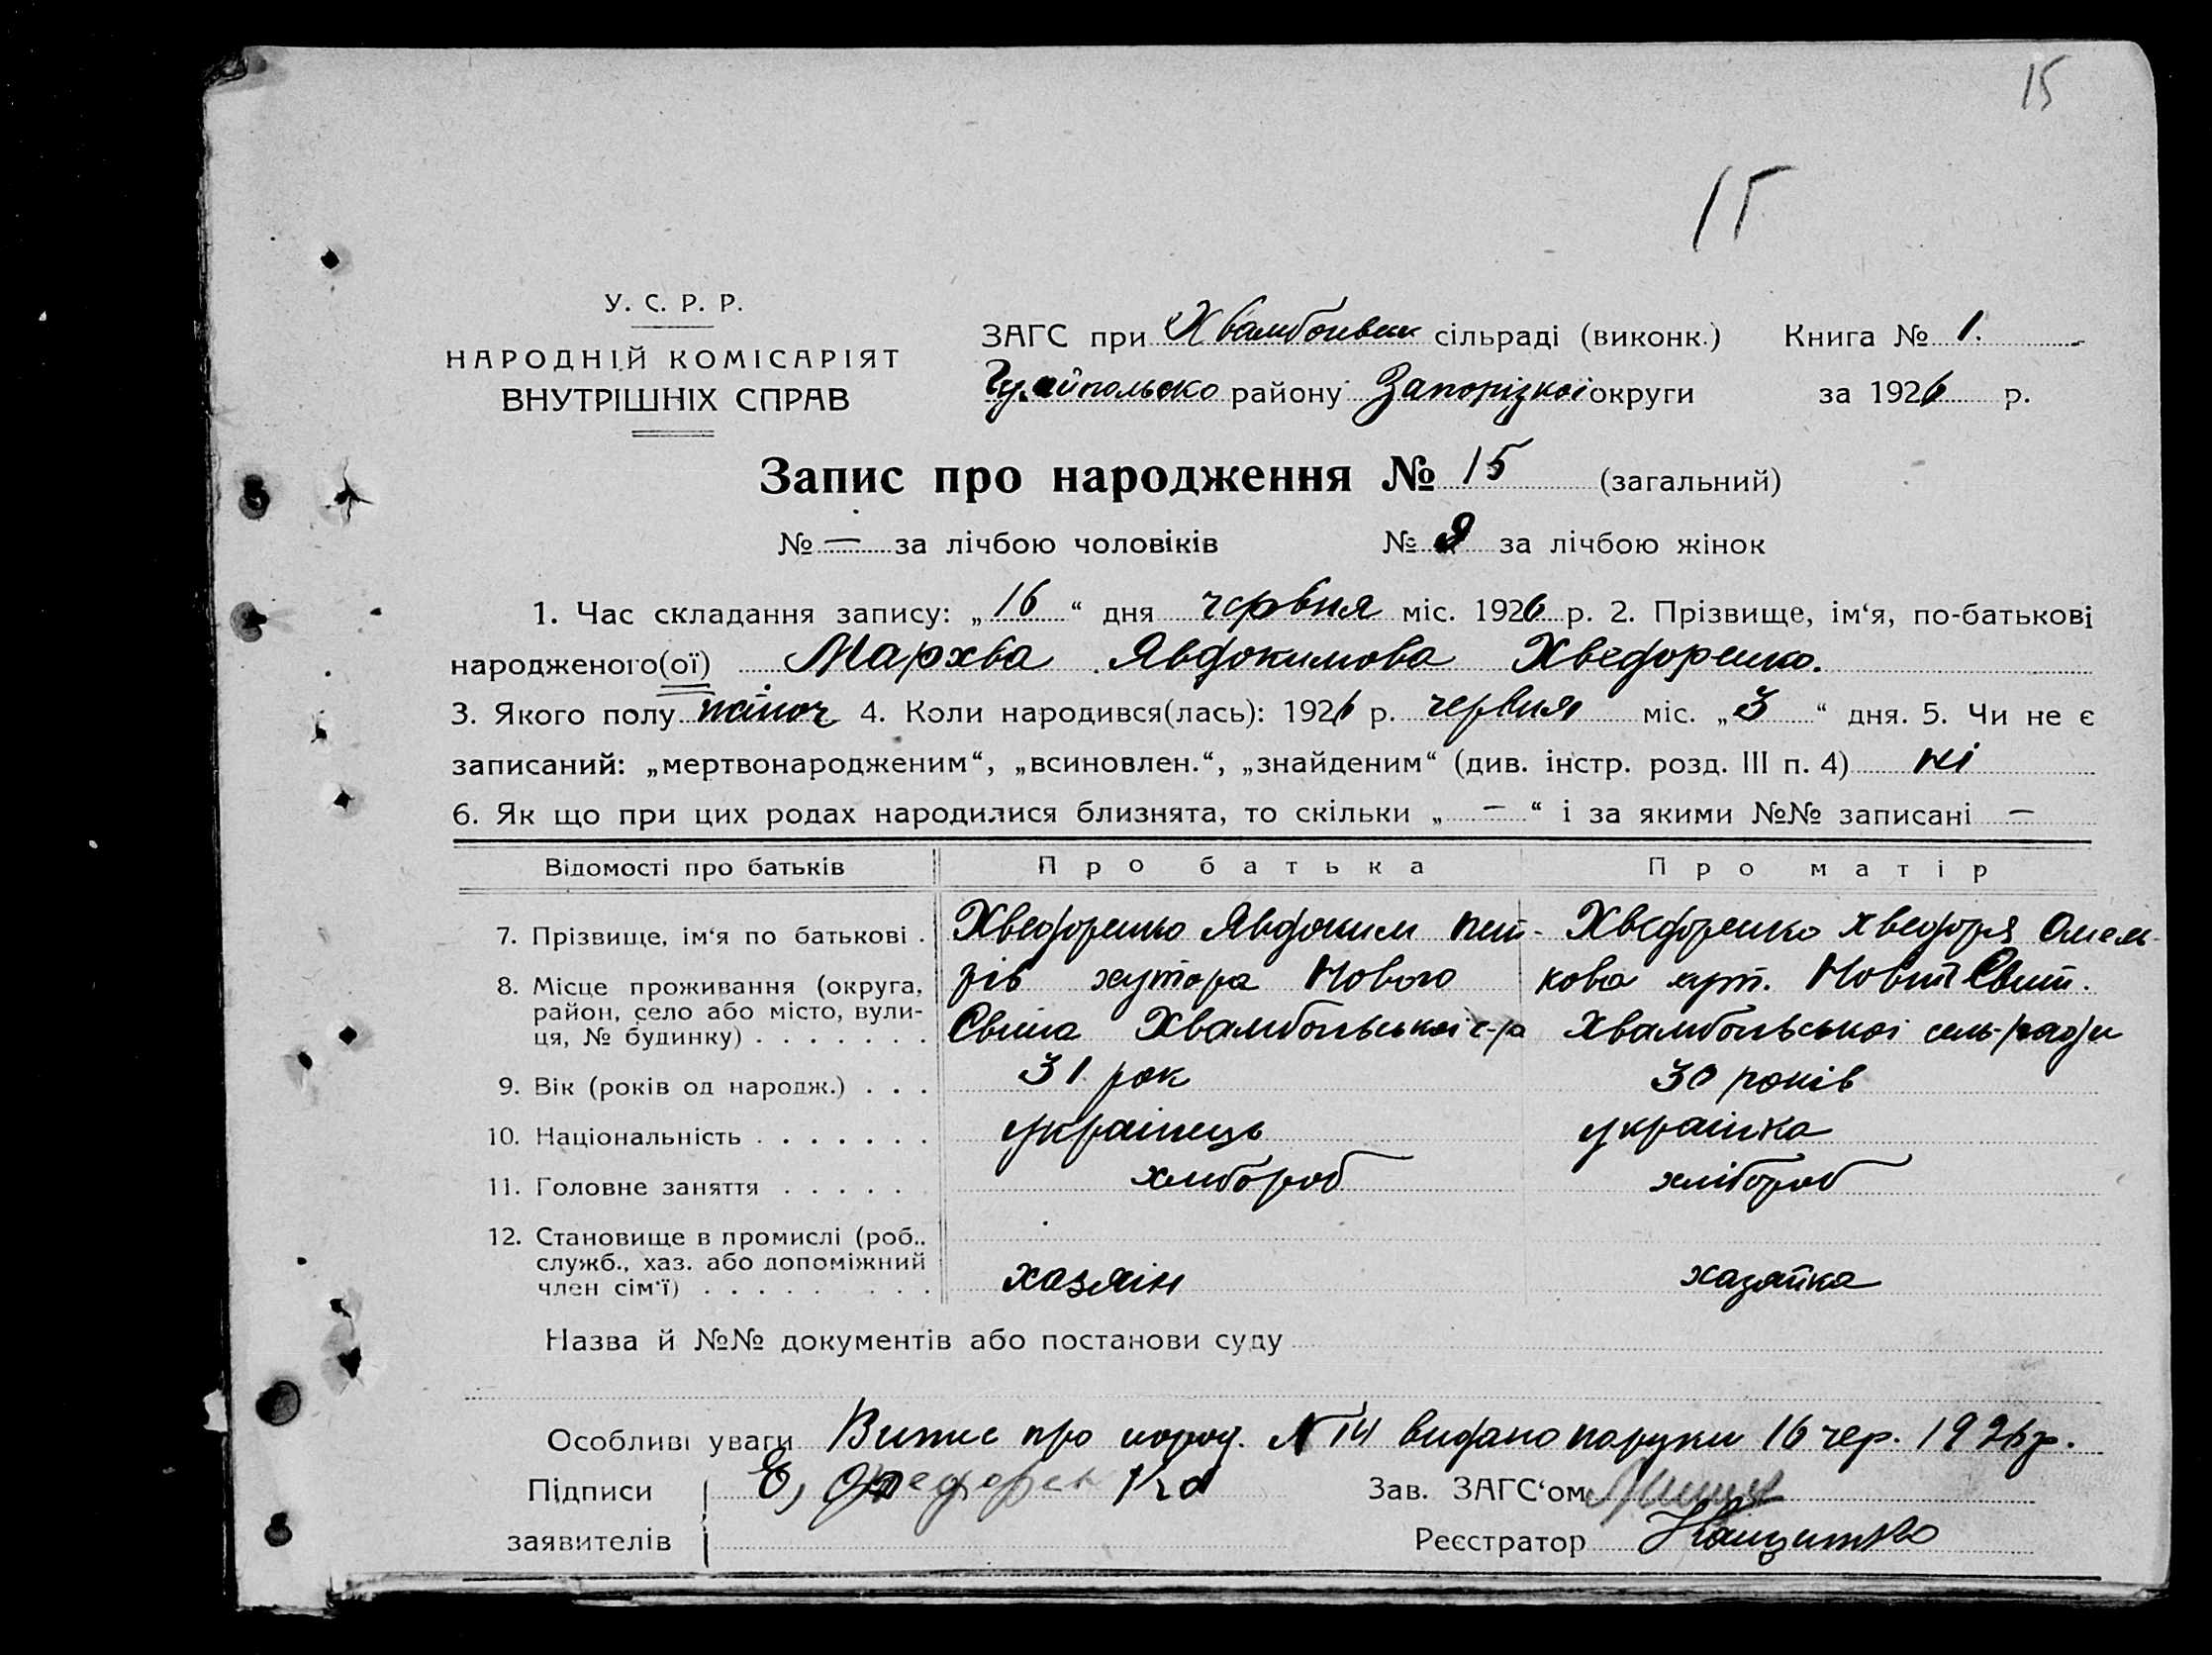 15
15
У. С. Р. Р.
НАРОДНІЙ КОМІСАРІЯТ
ВНУТРІШНІХ СПРАВ
ЗАГС при сільраді (виконк.) Книга № 1.
району Запорізкої округи за 1926 р.
Запис про народження № 15 (загальний)
№ — за лічбою чоловіків № за лічбою жінок
1. Час складання запису: „ 16 “ дня червня міс. 1926 р. 2. Прізвище, ім‘я, по-батькові
народженого(ої) Мархва Явдокимова Хведоренко.
3. Якого полу жіноч 4. Коли народився(лась): 1926 р. червня міс. „ 3 “ дня. 5. Чи не є
записаний: „мертвонародженим“, „всиновлен.“, „знайденим“ (див. інстр. розд. III п. 4) ні
6. Як що при цих родах народилися близнята, то скільки „ — “ і за якими №№ записані —
Відомості про батьків Про батька Про матір
7. Прізвище, ім‘я по батькові . Хведоренко Явдоким Пет- Хведоренко Хведоря Омель-
8. Місце проживання (округа, рів хутора Нового кова хут. Новий Світ.
район, село або місто, вули-
ця, № будинку) . . . . . . . Світа Хвамбольської с-р Хвамбольської сель-ради
9. Вік (років од народж.) . . . 31 рок 30 років
10. Національність . . . . . . . українець українка
11. Головне заняття . . . . . хлібороб хлібороб
12. Становище в промислі (роб.,
служб., хаз. або допоміжний
член сім‘ї) . . . . . . . . . хазяін хазяйка
Назва й №№ документів або постанови суду
Особливі уваги Випис про народ. № 14 видано на руки 16 чер. 1926 р.
Підписи Зав. ЗАГС‘ом
заявителів Реєстратор